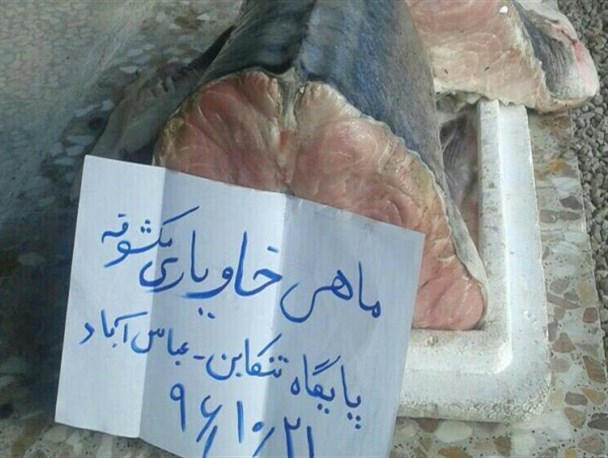 ماهی خاویاری مکشوفه
پایگاه تنکابن - عباس آباد
۹۶/۱۰/۲۱